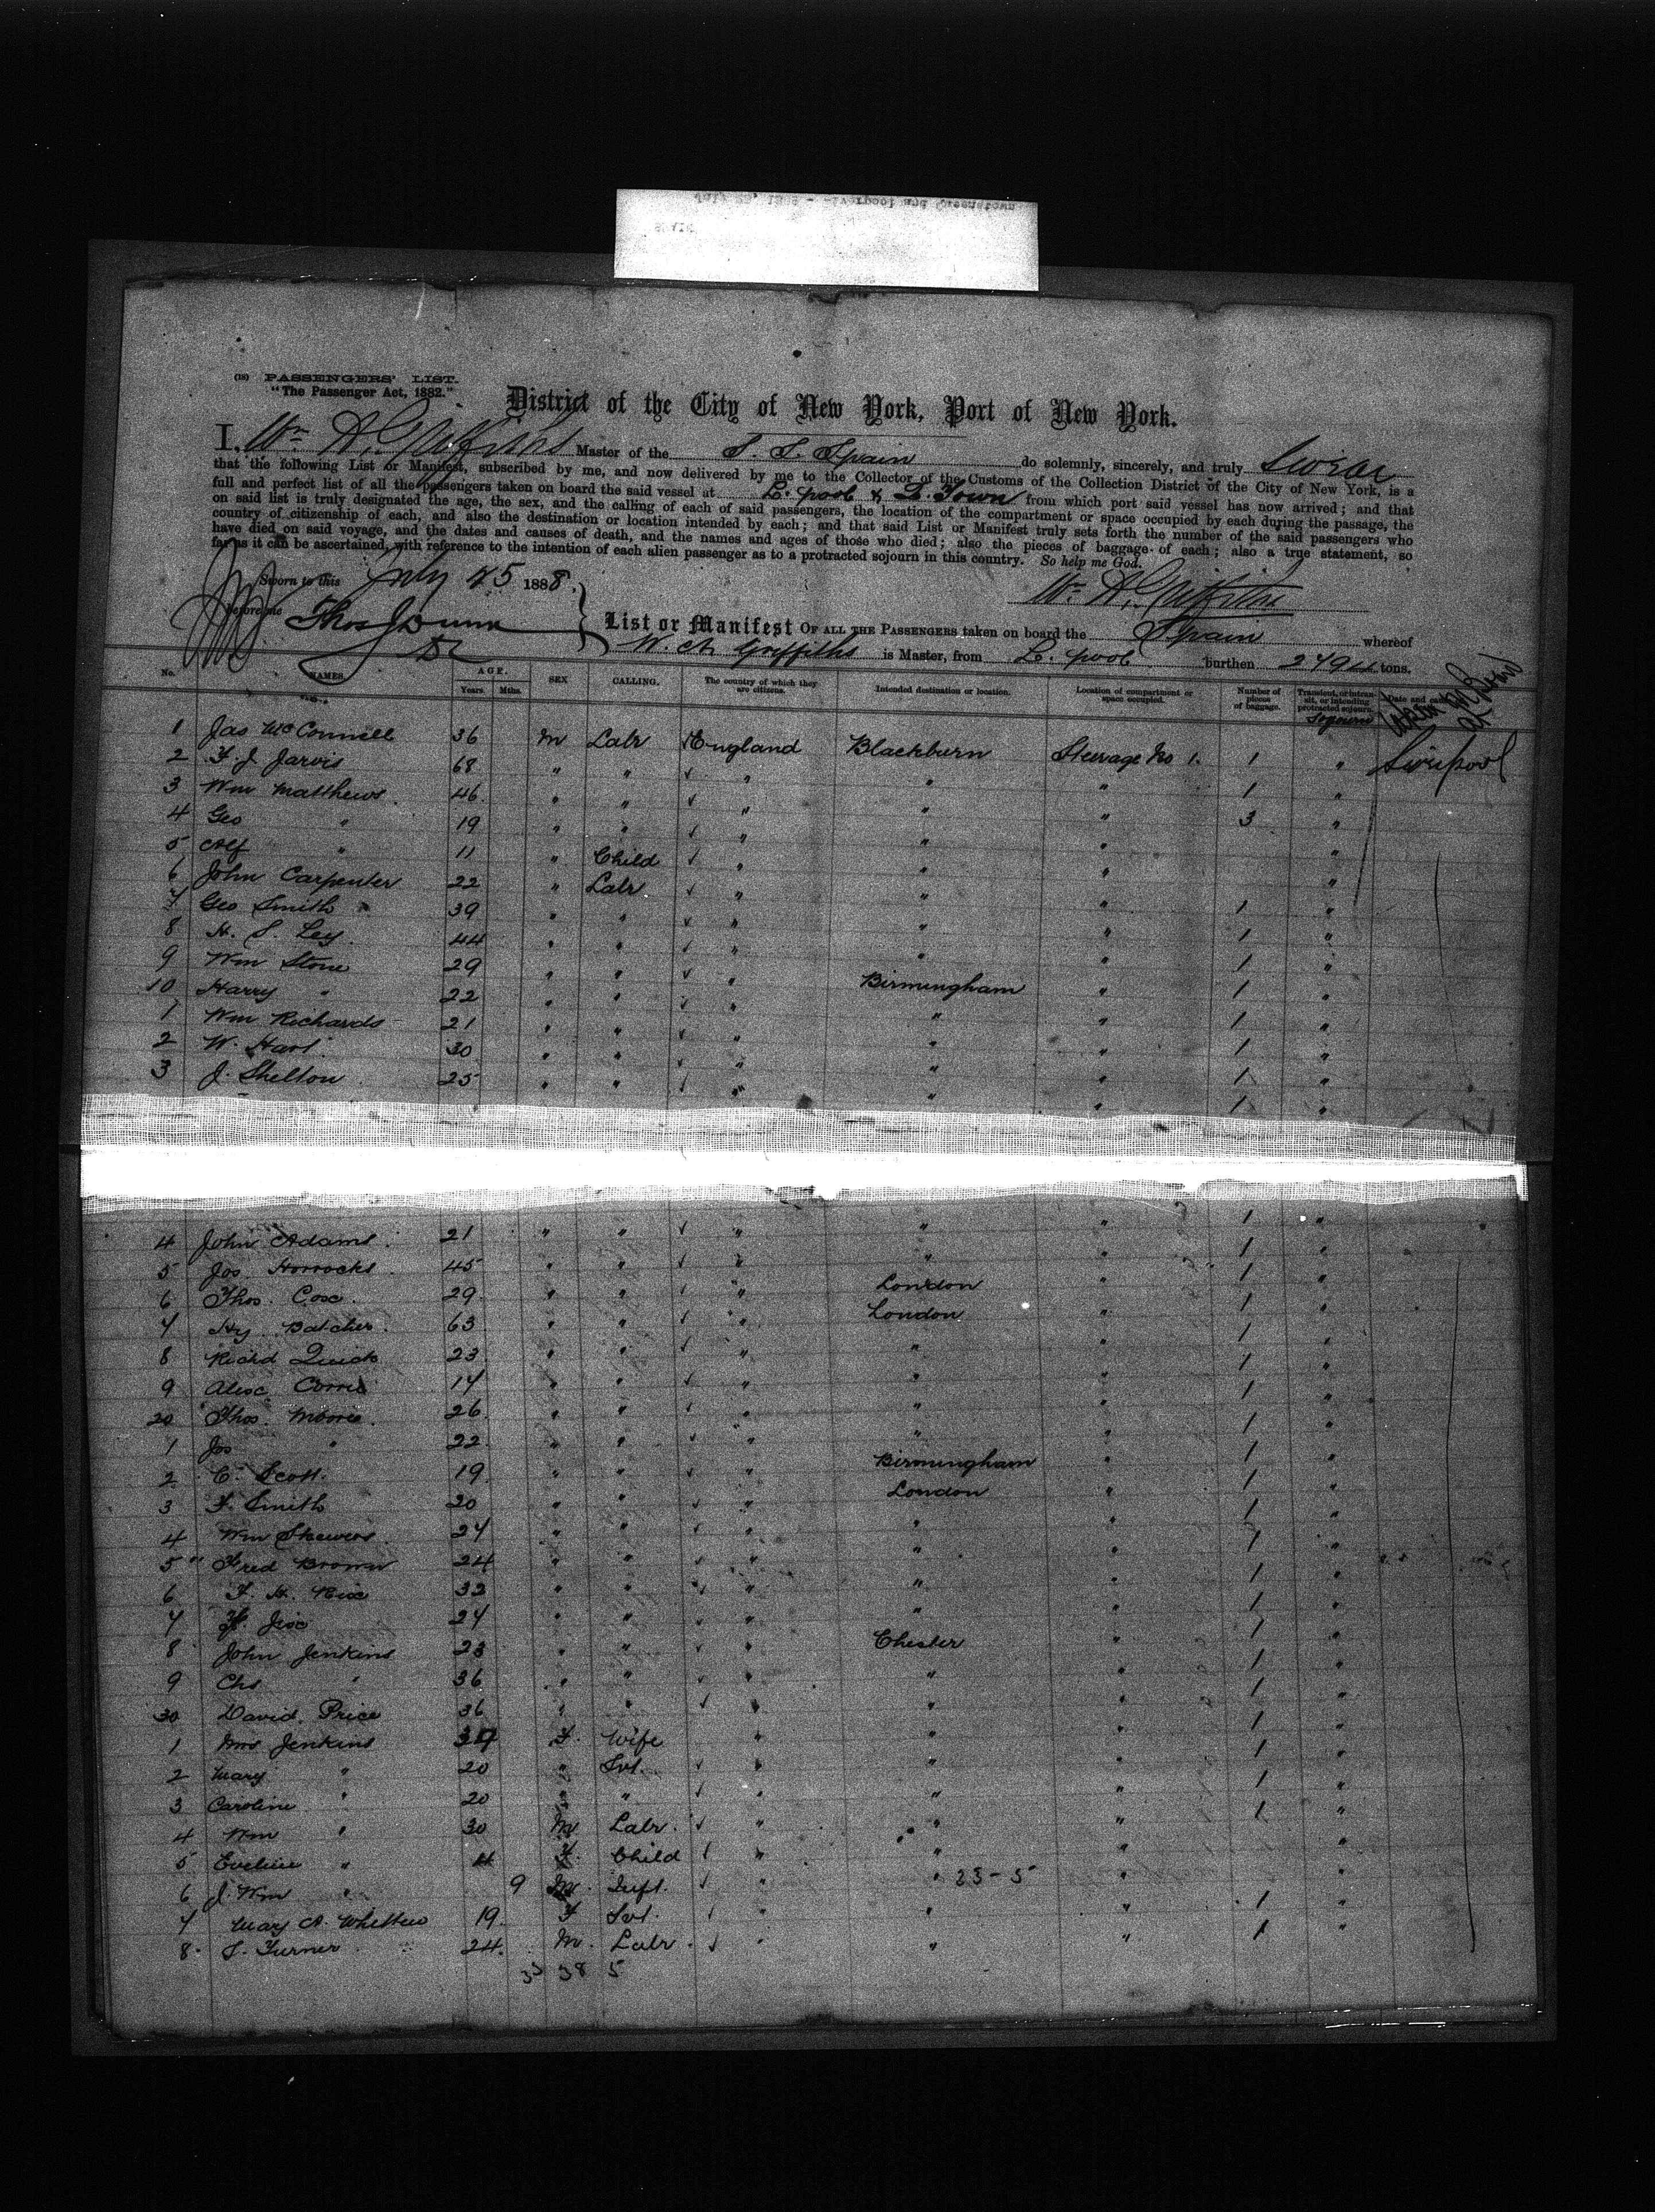 July 25, 1888 - Liverpool and Queenstown
SPAIN
(18) PASSENGERS' LIST.
"The Passenger Act, 1882."
District of the City of New York, Port of New York.
I, Wm A. Griffiths Master of the S. S. Spain do solemnly, sincerely, and truly swear
that the following List or Manifest, subscribed by me, and now delivered by me to the Collector of the Customs of the Collection District of the City of New York, is a
full and perfect list of all the passengers taken on board the said vessel at L. pool & Q. Town from which port said vessel has now arrived; and that
on said list is truly designated the age, the sex, and the calling of each of said passengers, the location of the compartment or space occupied by each during the passage, the
country of citizenship of each, and also the destination or location intended by each; and that said List or Manifest truly sets forth the number of the said passengers who
have died on said voyage, and the dates and causes of death, and the names and ages of those who died; also the pieces of baggage of each; also a true statement, so
far as it can be ascertained, with reference to the intention of each alien passenger as to a protracted sojourn in this country. So help me God.
Sworn to this July 25 1888. Wm A. Griffiths
before me Thos J Dunn
List or Manifest OF ALL THE PASSENGERS taken on board the Spain whereof
W. A. Griffiths is Master, from L. pool burthen tons.
No. NAMES. AGE. Years. Mths. SEX CALLING. The country of which they are citizens. Intended destination or location. Location of compartment or space occupied. Number of pieces of baggage. Transient, or in transit, or intending protracted sojourn. Date and cause
Sojourn
1 Jas McConnell 36 M Labr England Blackburn Steerage No 1. 1 " Liverpool
2 F. J. Jarvis 68 " " " " " 1 "
3 Wm Matthews 46 " " " " " 3 "
4 Geo " 19 " " " " " "
5 Alf " 11 " Child " " " "
6 John Carpenter 22 " Labr " " " 1 "
7 Geo Smith 39 " " " " " 1 "
8 H. S. Ley 44 " " " " " 1 "
9 Wm Stone 29 " " " Birmingham " 1 "
10 Harry " 22 " " " " " 1 "
1 Wm Richards 21 " " " " " 1 "
2 W. Hart 30 " " " " " 1 "
3 J. Shelton 25 " " " " " 1 "
4 John Adams 21 " " " " " 1 "
5 Jos. Horrocks 45 " " " " " 1 "
6 Thos. Cox 29 " " " London " 1 "
7 Hy. Batcher 63 " " " London " 1 "
8 Richd Quick 23 " " " " " 1 "
9 Alex 14 " " " " " 1 "
20 Thos. Moore 26 " " " " " 1 "
1 Jos " 22 " " " " " 1 "
2 C. Scott 19 " " " Birmingham " 1 "
3 F. Smith 20 " " " London " 1 "
4 Wm Skewes 27 " " " " " 1 "
5 Fred Brown 24 " " " " " 1 "
6 F. H. Rix 32 " " " " " 1 "
7 24 " " " " " 1 "
8 John Jenkins 23 " " " Chester " 1 "
9 Chs " 36 " " " " " 1 "
30 David Price 36 " " " " " 1 "
1 Mrs Jenkins F. Wife " " " 1 "
2 Mary " 20 " Svt. " " " 1 "
3 Caroline " 20 " " " " " 1 "
4 Wm " 30 M Labr. " " " 1 "
5 Eveline " 4 F. Child " " " "
6 J. Wm " 9 M. Inft. " " 23-5 " "
7 Mary A. 19 F Svt. " " " 1 "
8 S. Turner 24. M. Labr. " " " 1
33 38 5